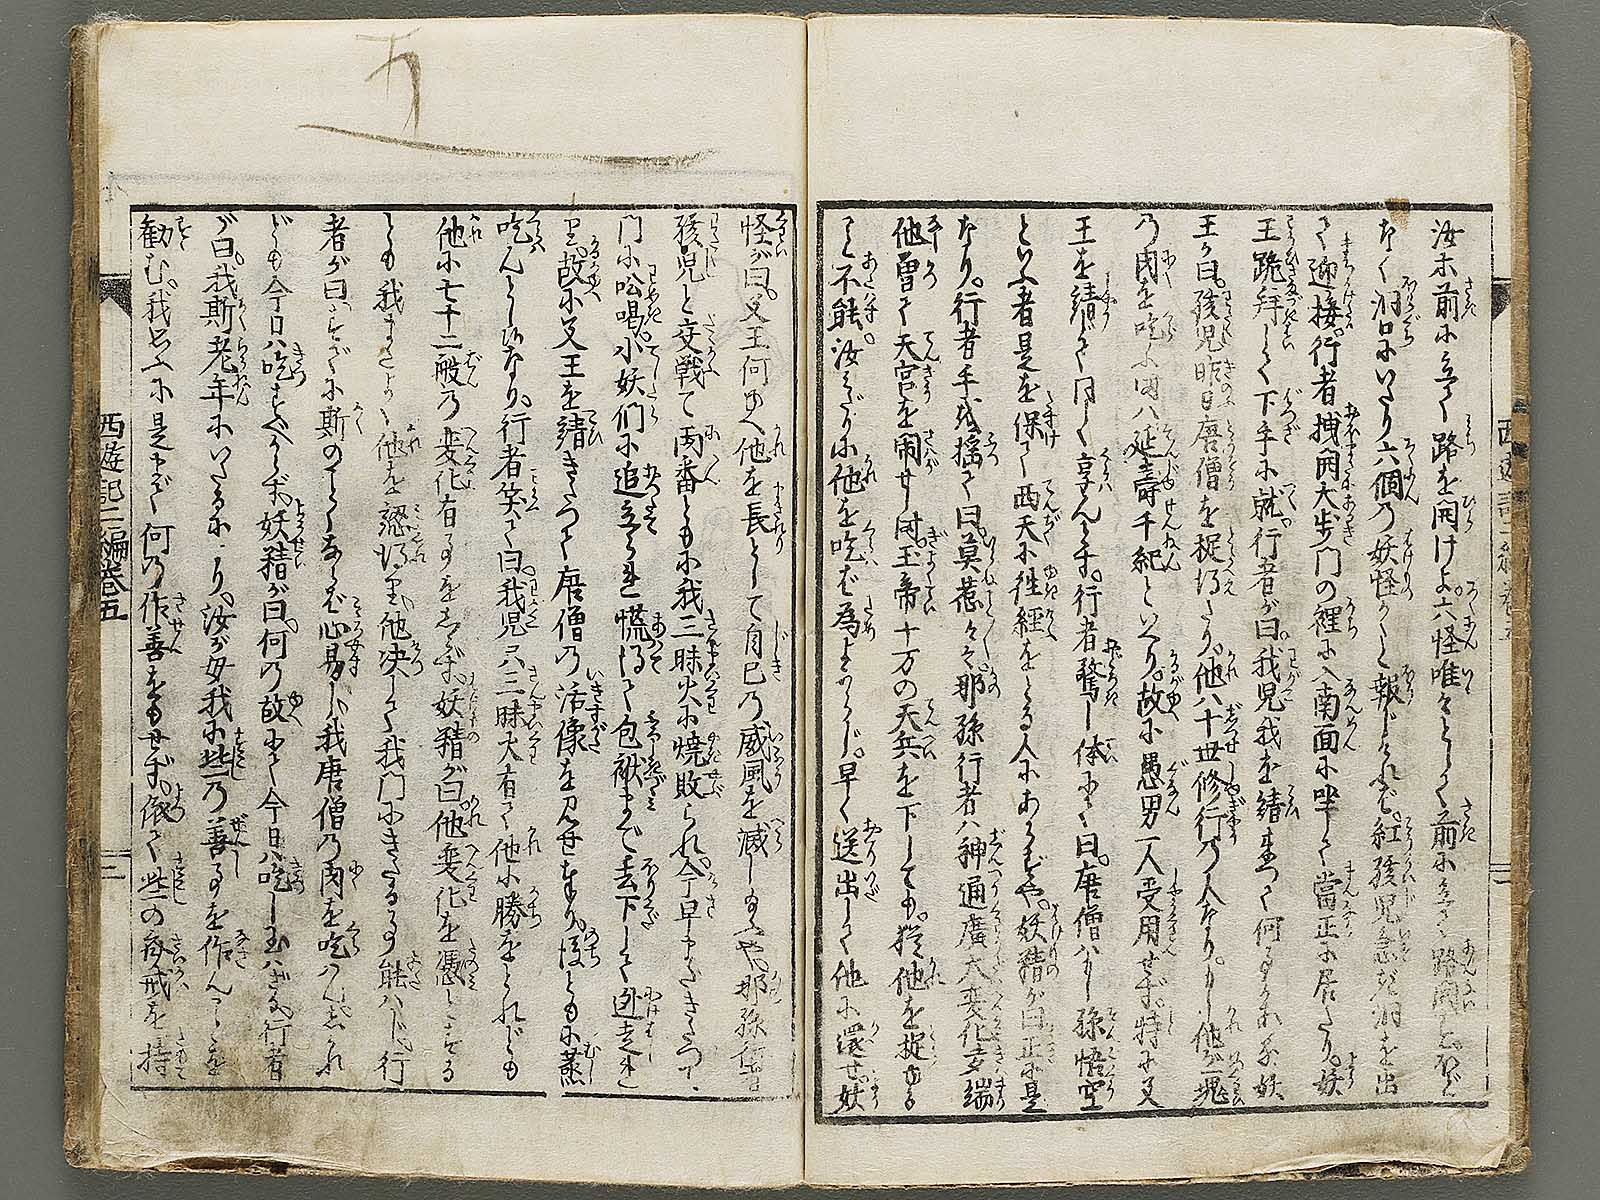 汝木前に立て路を開けよ六怪唯々として前に立さ路開しほど
なく洞口にいたり六個乃妖怪かくと報じければ紅孩児急ぎ洞を出
て迎接行者拽開大歩門の裡に入南面に坐して當正に居たり妖
王跪拜して下手に就行者が曰我児我を請來つて何事かある妖
王が曰孩児昨日唐僧を捉得たり他ハ十世修行乃人なりもし他が一塊
乃肉を吃ふ時ハ延壽千紀といへり故に愚男一人受用せず特に父
王を請して同じく享んとす行者驚し体にて曰唐僧ハもし孫悟空
といふ者是を保て西天に往經をとる人にあらずや妖精が曰正に是
なり行者手を搖て曰莫惹々々那孫行者ハ神通廣大変化多端
他曽て天宮を閙せし時玉帝十万の天兵を下しても猶他を捉ゆる
こと不能汝みだりに他を吃ば為よからじ早く送出して他に還せ妖
怪が曰父王何ゆへ他を長として自己乃威風を滅し給ふや那孫行者
孩児と交戦て両番ともに我三昧火に焼敗られ今早またきたつて
門に吆喝小妖们に追立られ慌得て包袱まで丢下して逃走れ
り故に父王を請きたつて唐僧乃活像を見せ奉り後ともに蒸
吃んとしけなり行者笑て曰我児只三昧火有て他に勝をとれども
他に七十二般乃変化有事をしらず妖精が曰他変化を憑とする
とも我またよく他を認得り他决して我門にきたる事能ハじ行
者が曰すでに斯のごとくならば心易し我唐僧乃肉を吃ハんしかれ
ども今日ハ吃すべからず妖精が曰何乃故にて今日ハ吃し玉ハざる行者
が曰我斯老年にいたるにより汝が母我に些乃善事を作んことを
勧む我思ふに是まで何乃作善をもせず依て些の斎戒を持
西遊記二編巻五
西遊記二編巻五